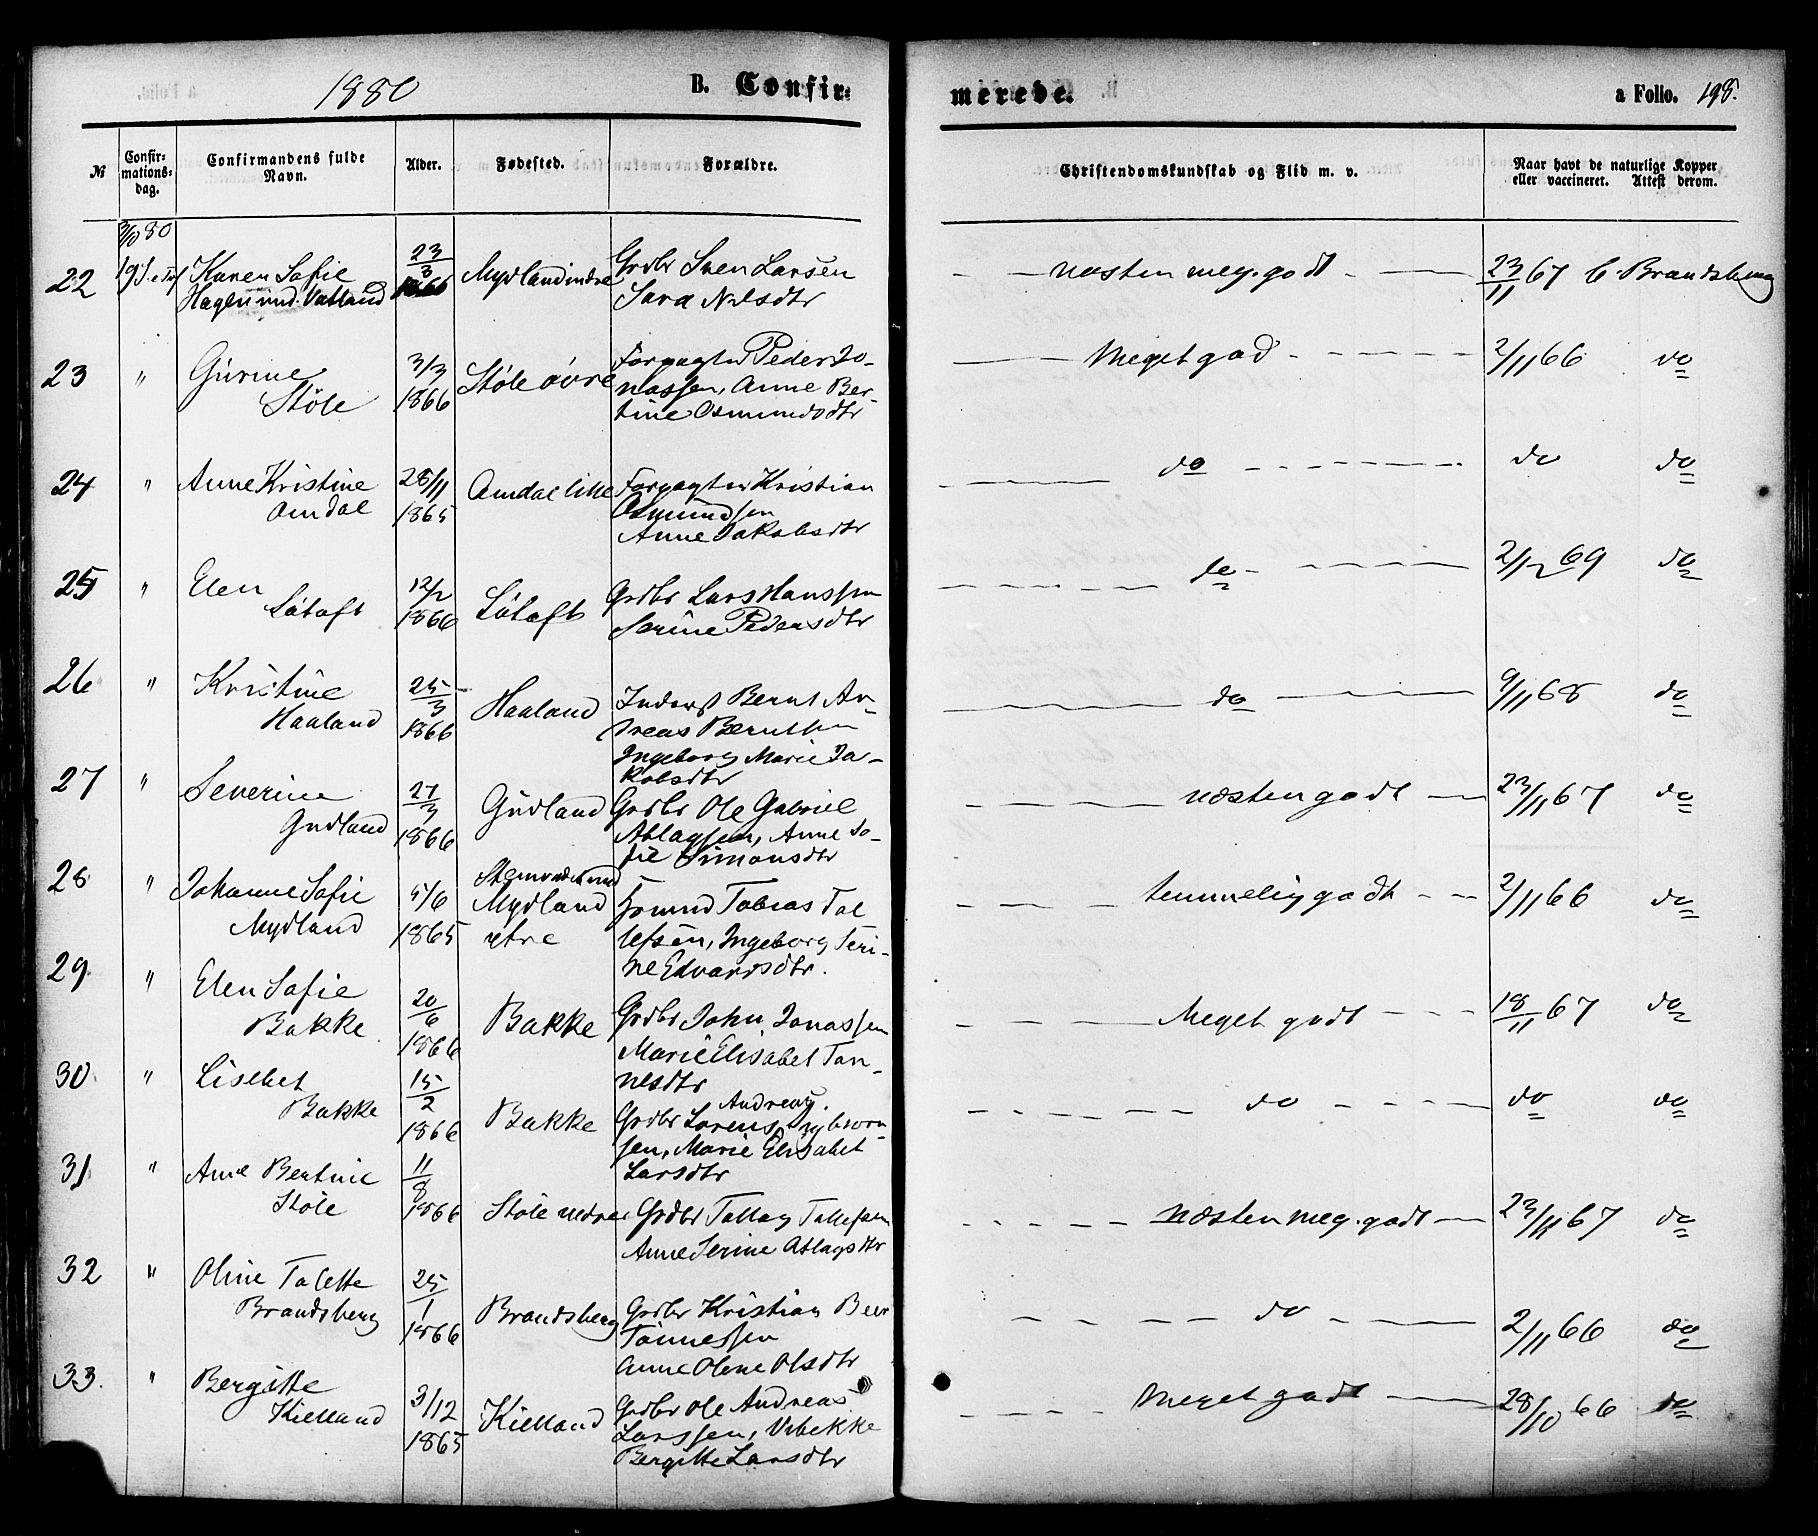 1880
B. Confir-
merede.
a Folio. 198.
№
Confir-
mations-
dag.
Confirmandens fulde
Navn.
Alder.
Fødested.
Forældre.
Christendomskundskab og Flid m. v.
Naar havt de naturlige Kopper
eller vaccineret. Attest derom.
3/10 80
22 19 S. e Trf Karen Sofie 23/3 Mydland indre Grdbr Sven Larsen næsten meg. godt 23/11 67 C. Brandsberg
Vatland 1866 Sara Nilsdtr
23 " Gurine 3/3 Støle øvre Forpagter Peder Jo- Meget god 2/11 66 do
Støle 1866 nassen, Anne Ber-
tine Osmundsdtr
24 " Anne Kristine 28/11 Amdal lille Forpagter Kristian do do do
Amdal 1865 Osmundsen
Anne Jakobsdtr
25 " Elen 12/2 Løtoft Grdbr Lars Hanssen do 2/12 69 do
Løtoft 1866 Serine Pedersdtr
26 " Kristine 25/3 Haaland Inderst Bernt An- do 9/11 68 do
Haaland 1866 dreas Berntsen
Ingeborg Marie Ja-
kobsdtr
27 " Severine 27/3 Gudland Grdbr Ole Gabriel næsten godt 23/11 67 do
Gudland 1866 Atlagsen, Anne So-
fie Simonsdtr
28 " Johanne Sofie 5/6 Mydland Tobias Tol temmelig godt 2/11 66 do
Mydland 1865 ytre lefsen, Ingeborg Seri-
ne Edvardsdtr.
29 " Elen Sofie 20/6 Bakke Grdbr John Jonassen Meget godt 18/11 67 do
Bakke 1866 Marie Elisabet Tøn-
nesdtr
30 " Lisebet 15/2 Bakke Grdbr Lorens Andreas do do do
Bakke 1866 sen, Marie Elisabet
Larsdtr
31 " Ane Bertine 11/8 Støle nedre Grdbr Tollag Tollefsen næsten meg. godt 23/11 67 do
Støle 1866 Anne Serine Atlagsdtr
32 " Oline Talette 25/1 Brandsberg Grdbr Kristian Beer do 2/11 66 do
Brandsberg 1866 Tønnessen
Anne Oline Olsdtr
33. " Bergitte 3/12 Kielland Grdbr Ole Andreas Meget godt 28/10 66 do
Kielland 1865 Larssen, Vibekke
Bergitte Larsdtr